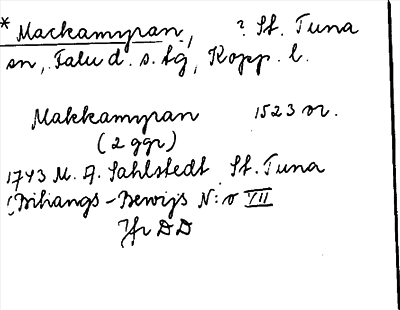 * Mackamyran, ? St. Tuna
sn, Falu d. s. tg, Kopp. l.
Makkamyran 1523 or.
(2 ggr)
1743 M. A. Sahlstedt St. Tuna
Bihangs-Bewijs N:o VII
Jfr DD